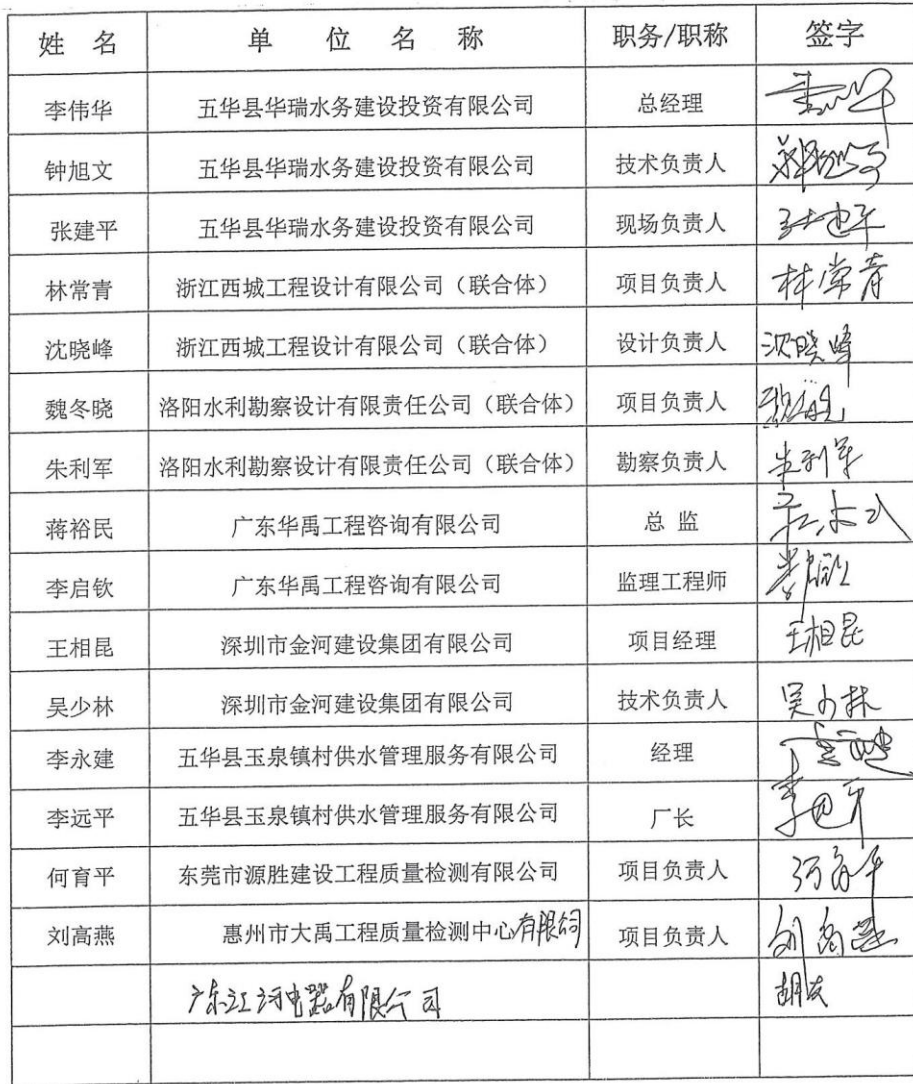 姓 名 单 位 名 称 职务/职称 签字
李伟华 五华县华瑞水务建设投资有限公司 总经理
钟旭文 五华县华瑞水务建设投资有限公司 技术负责人
张建平 五华县华瑞水务建设投资有限公司 现场负责人
林常青 浙江西城工程设计有限公司（联合体） 项目负责人 林常青
沈晓峰 浙江西城工程设计有限公司（联合体） 设计负责人 沈晓峰
魏冬晓 洛阳水利勘察设计有限责任公司（联合体） 项目负责人
朱利军 洛阳水利勘察设计有限责任公司（联合体） 勘察负责人 朱利军
蒋裕民 广东华禹工程咨询有限公司 总 监
李启钦 广东华禹工程咨询有限公司 监理工程师
王相昆 深圳市金河建设集团有限公司 项目经理 王相昆
吴少林 深圳市金河建设集团有限公司 技术负责人 吴少林
李永建 五华县玉泉镇村供水管理服务有限公司 经理
李远平 五华县玉泉镇村供水管理服务有限公司 厂长
何育平 东莞市源胜建设工程质量检测有限公司 项目负责人 何育平
刘高燕 惠州市大禹工程质量检测中心有限公司 项目负责人 刘高燕
广东江河电器有限公司